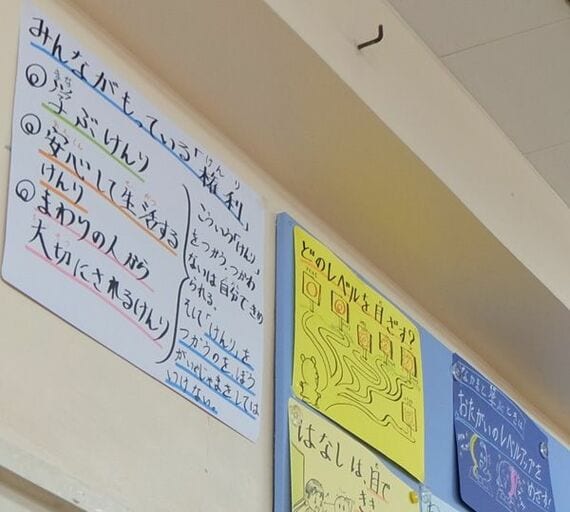 みんながもっている「権利」
学ぶけんり
安心して生活する
けんり
まわりの人から
大切にされるけんり
こういう「けんり」
をつかう、つかわ
ないは自分できめ
られる。
そして「けんり」を
つかうのを、ぼう
がいやじゃまをしては
いけない。
どのレベルを目ざす?
はなしは、目で
おたがいのレベルアップを
めざす!